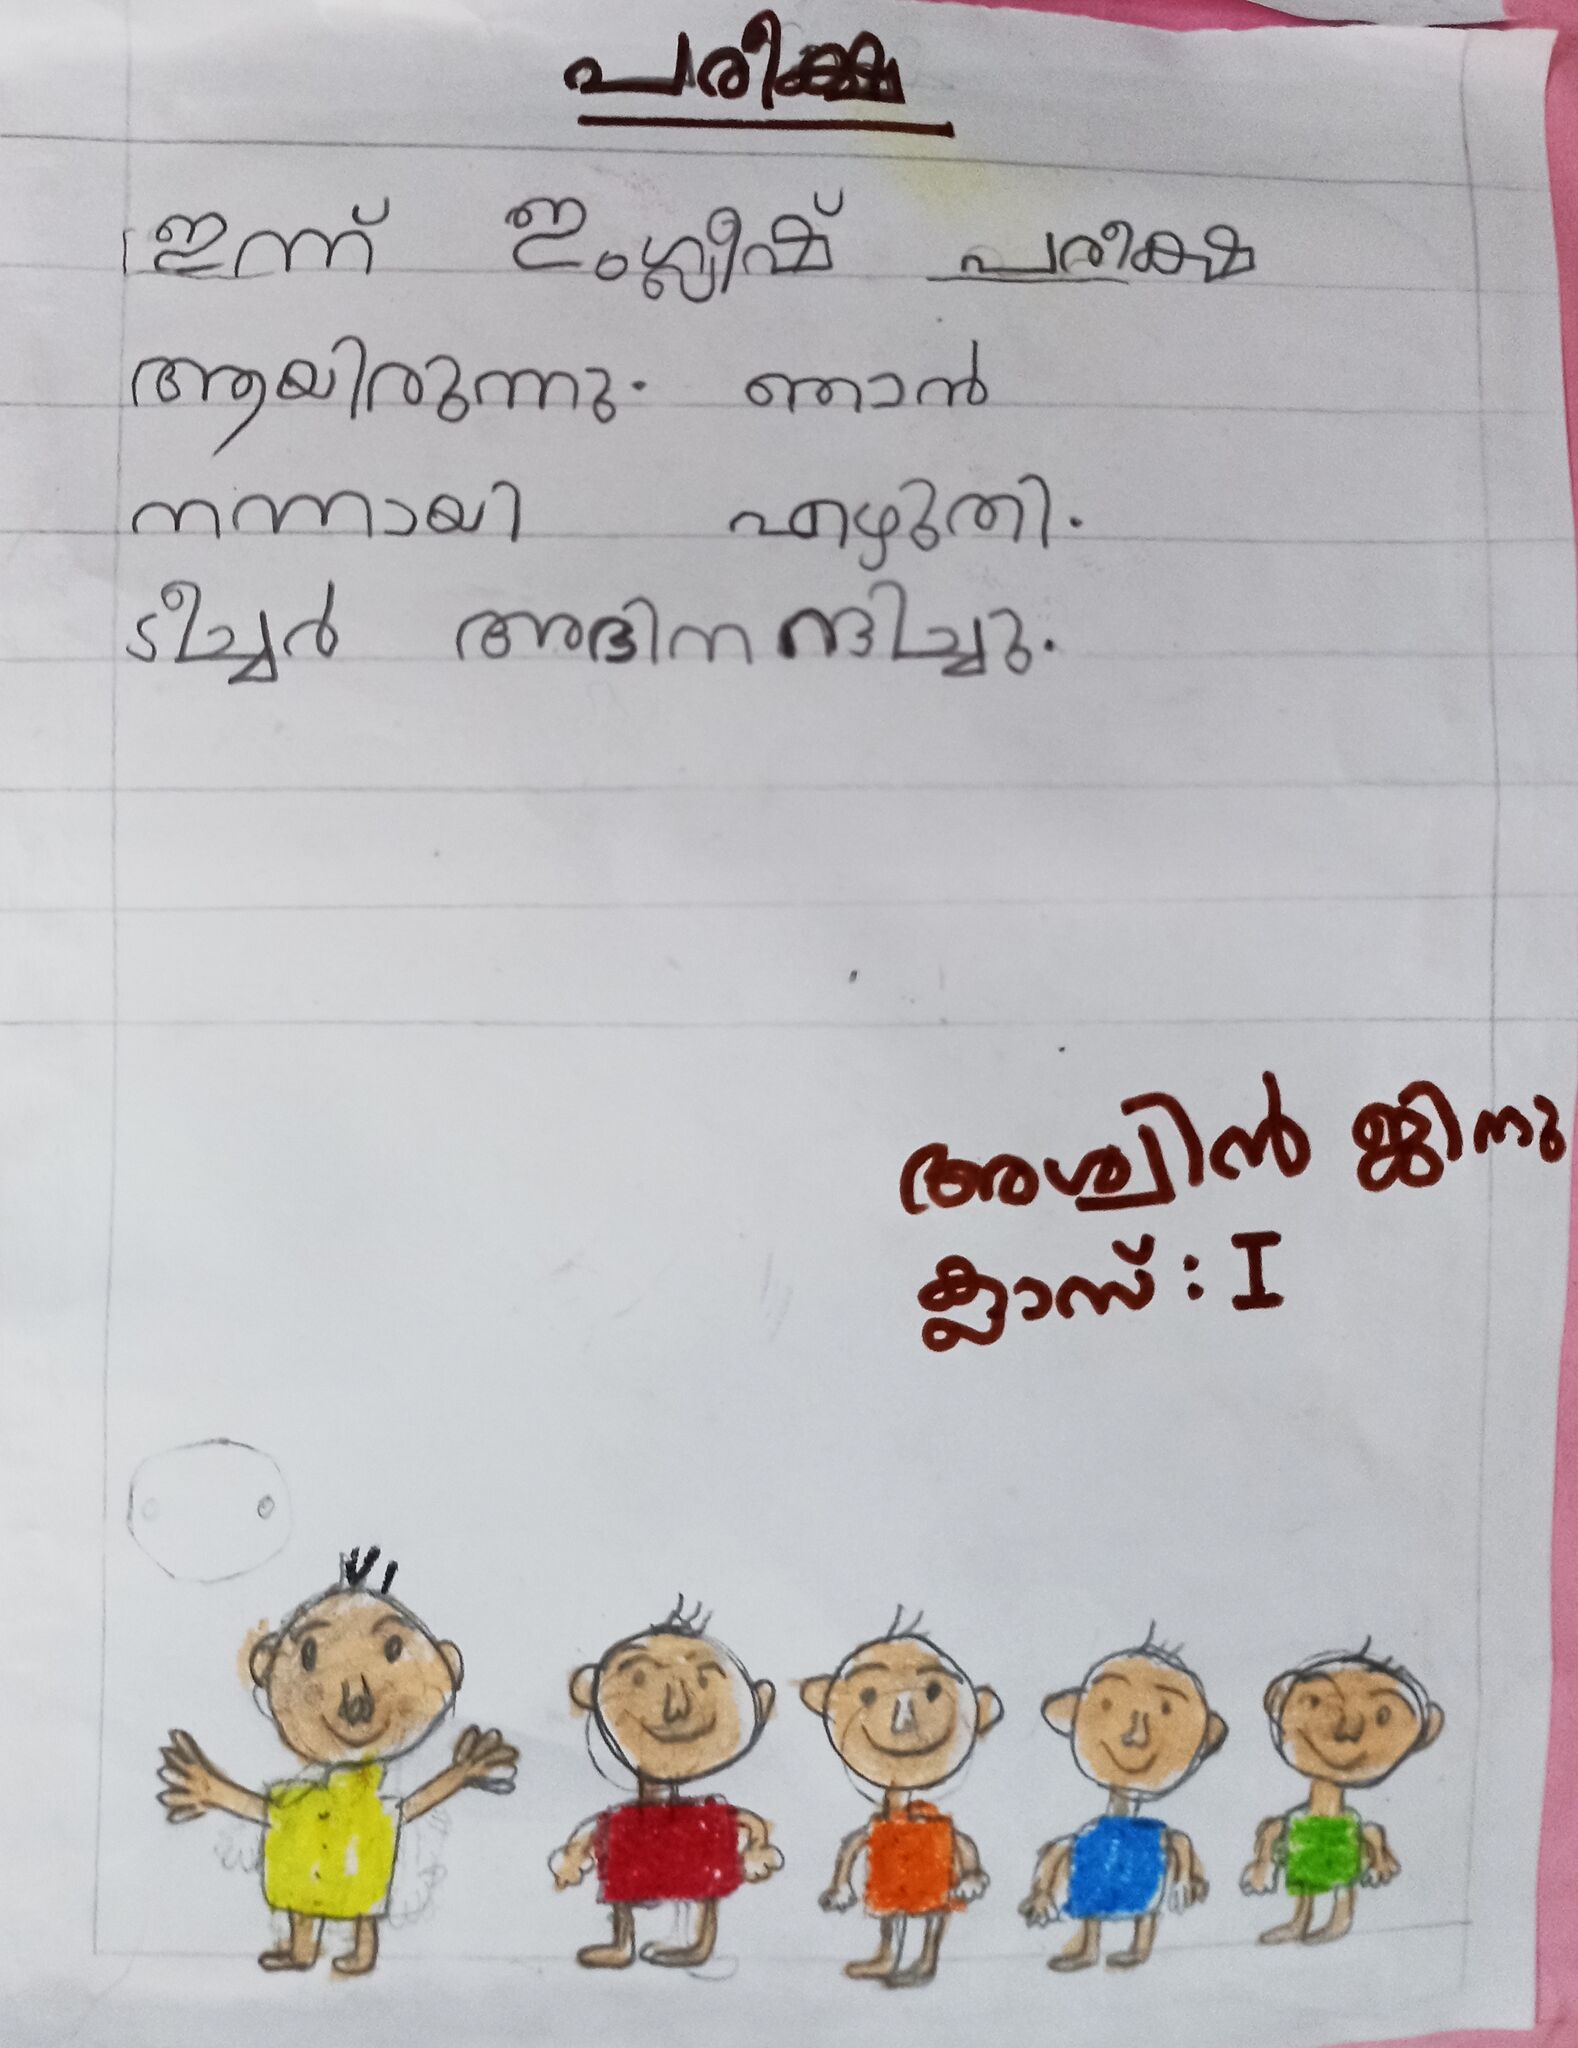 പരീക്ഷ
ഇന്ന് ഇംഗ്ലീഷ് പരീക്ഷ
ആയിരുന്നു. ഞാൻ
നന്നായി എഴുതി.
ടീച്ചർ അഭിനന്ദിച്ചു.
അശ്വിൻ ജിനു
ക്ലാസ് : I